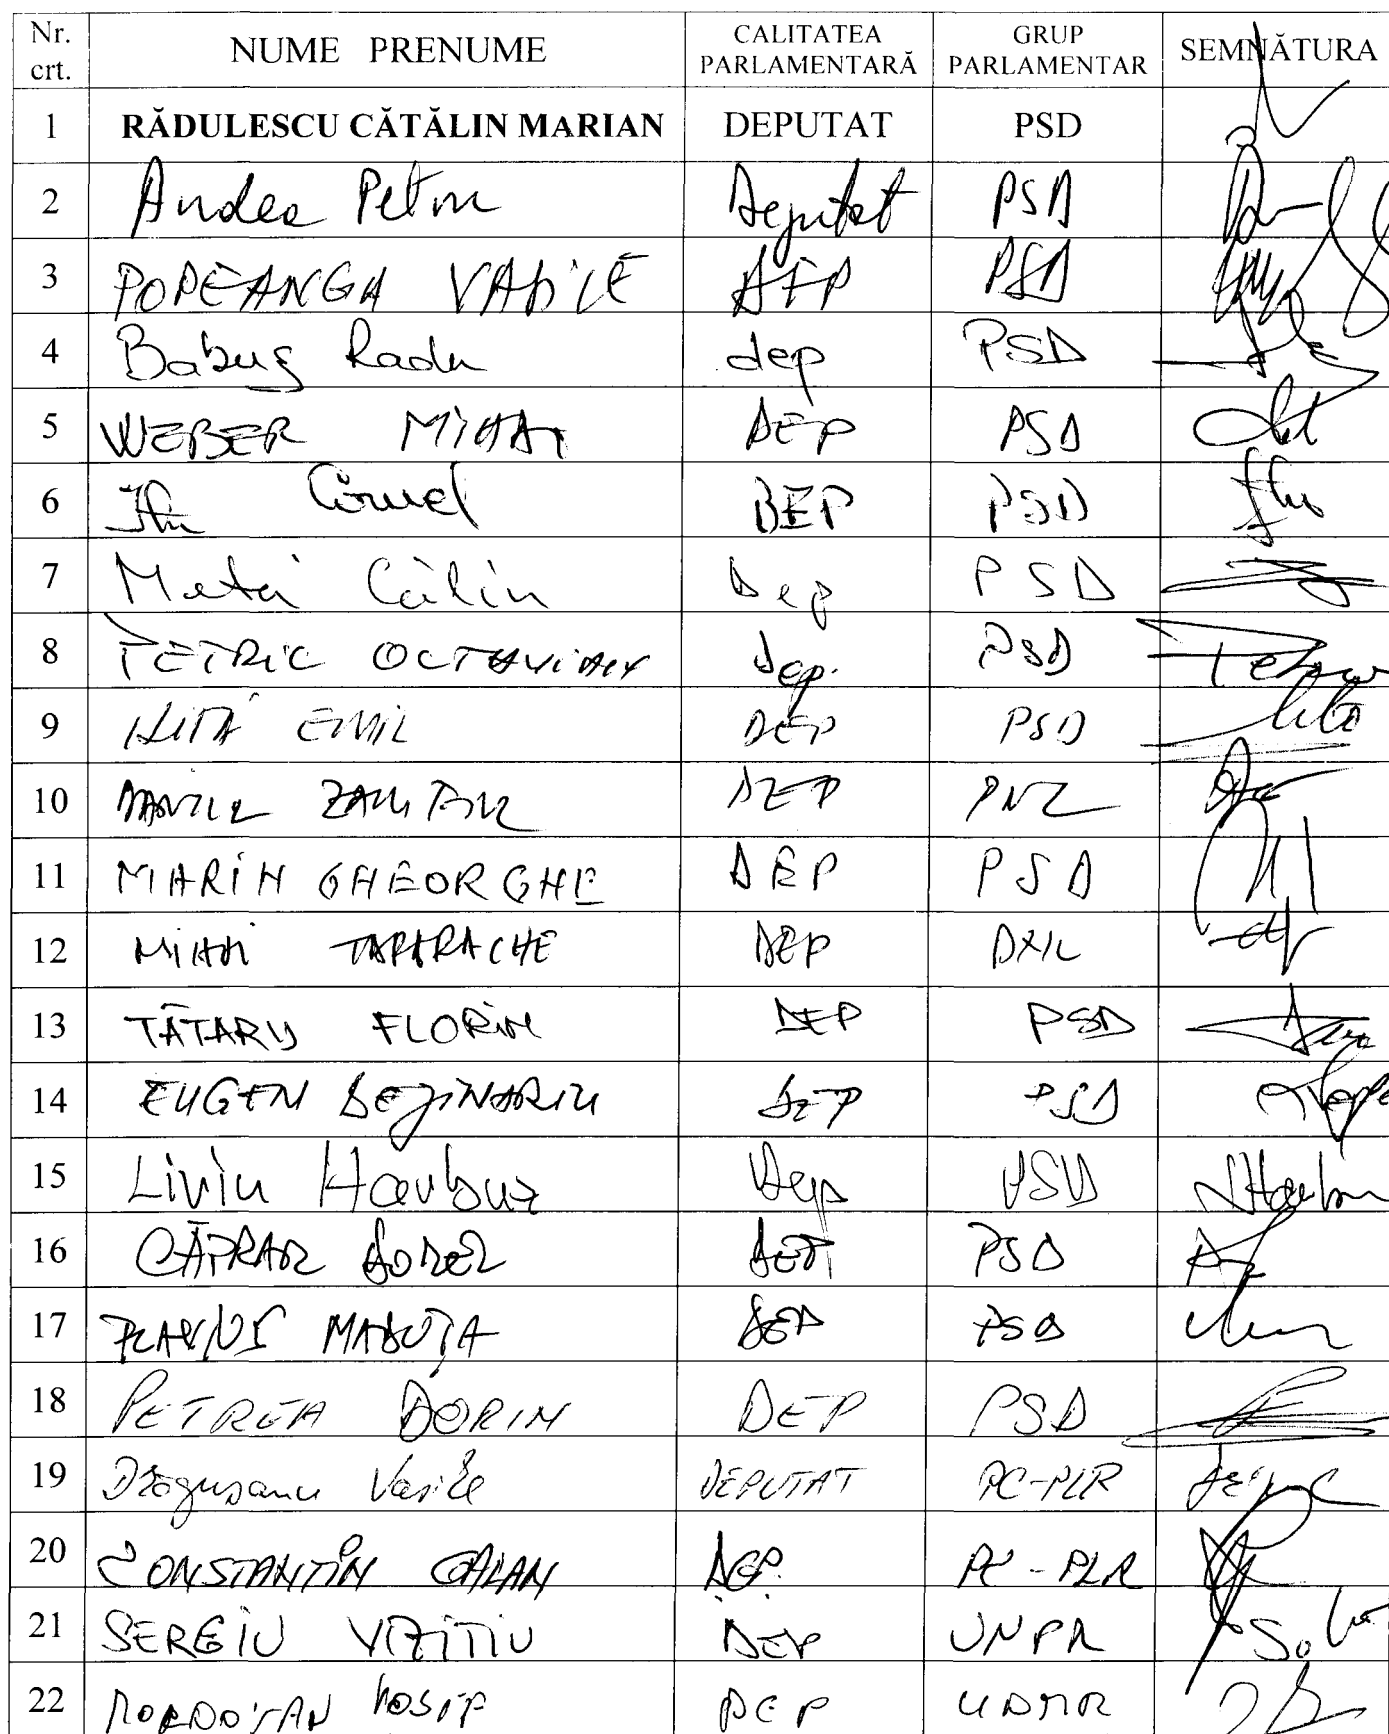 Nr. crt. NUME PRENUME CALITATEA PARLAMENTARĂ GRUP PARLAMENTAR SEMNĂTURA
1 RĂDULESCU CĂTĂLIN MARIAN DEPUTAT PSD
2 Andea Petru Deputat PSD
3 POPEANGA VASILE DEP PSD
4 Babuș Radu dep PSD
5 WEBER MIHAI DEP PSD
6 Cornel DEP PSD
7 Matei Călin Dep PSD
8 PETRIC OCTAVIAN Dep. PSD
9 NIȚĂ EMIL DEP PSD
10 DANIEL DEP PNL
11 MARIN GHEORGHE DEP PSD
12 MIHAI TARARACHE DEP
13 TĂTARU FLORIN DEP PSD
14 EUGEN BEJINARIU DEP PSD
15 Liviu Harbuz Dep PSD
16 CĂPRAR DOREL DEP PSD
17 MADUȚA DEP PSD
18 PETREA DORIN DEP PSD
19 Drăgușanu Vasile DEPUTAT PC-PLR
20 CONSTANTIN GALAN DEP. PC-PLR
21 SERGIU VIZITIU DEP UNPR
22 DEP UDMR